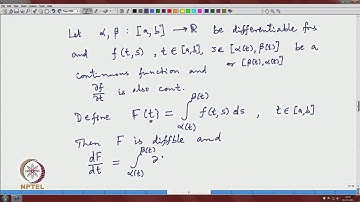 Let α, β : [a, b] → ℝ be differentiable fns
and f(t,s), t ∈ [a,b], s ∈ [α(t), β(t)] be a
or [β(t), α(t)]
continuous function and
∂f/∂t is also cont.
Define F(t) = ∫_{α(t)}^{β(t)} f(t,s) ds, t ∈ [a,b]
Then F is diffble and
dF/dt = ∫_{α(t)}^{β(t)} ∂
NPTEL